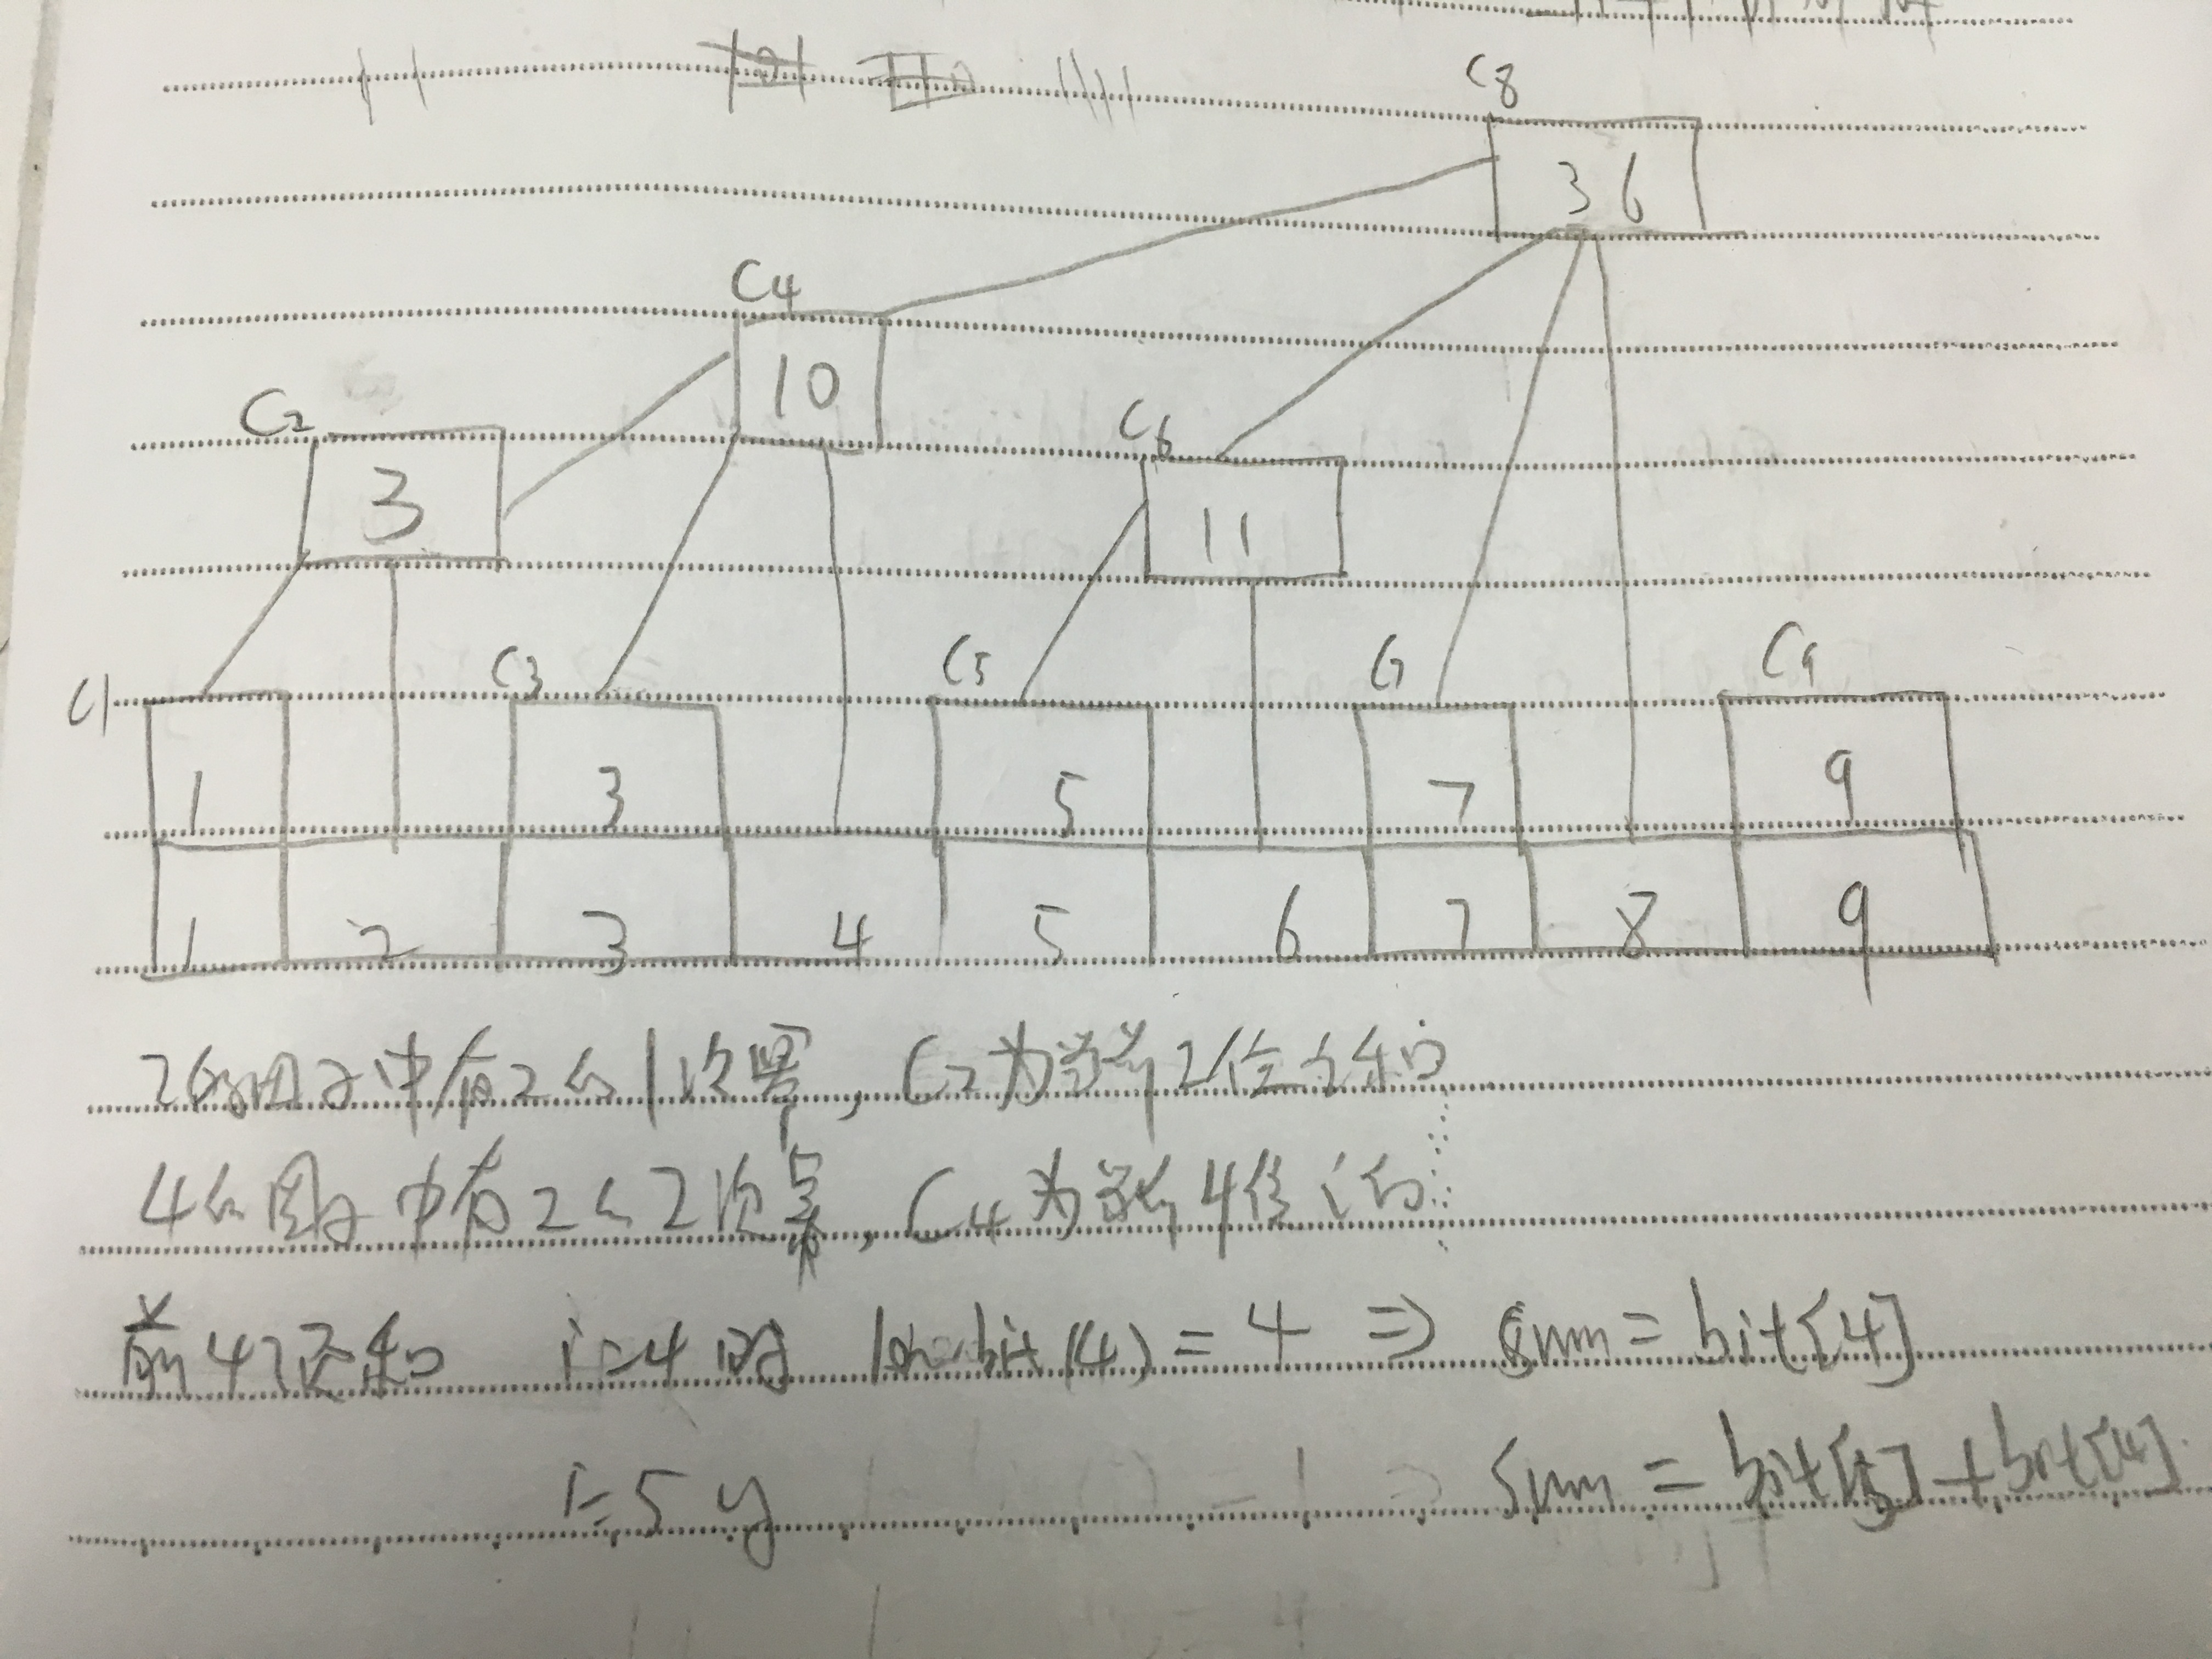 C8
36
C4
10
C2
3
C6
11
C1 C3 C5 C7 C9
1 3 5 7 9
1 2 3 4 5 6 7 8 9
2的因子中有2的1次幂, C2为前2位之和
4的因子中有2的2次幂, C4为前4位之和
前4项和 i=4时 lowbit(4)=4 => sum=bit[4]
i=5时 sum=bit[5]+bit[4]